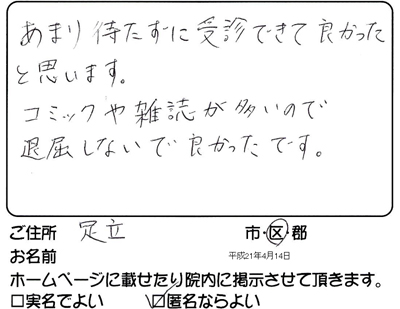 あまり待たずに受診できて良かった
と思います。
コミックや雑誌が多いので
退屈しないで良かったです。
ご住所 足立 市・区・郡
お名前 平成21年4月14日
ホームページに載せたり院内に掲示させて頂きます。
□実名でよい ☑匿名ならよい